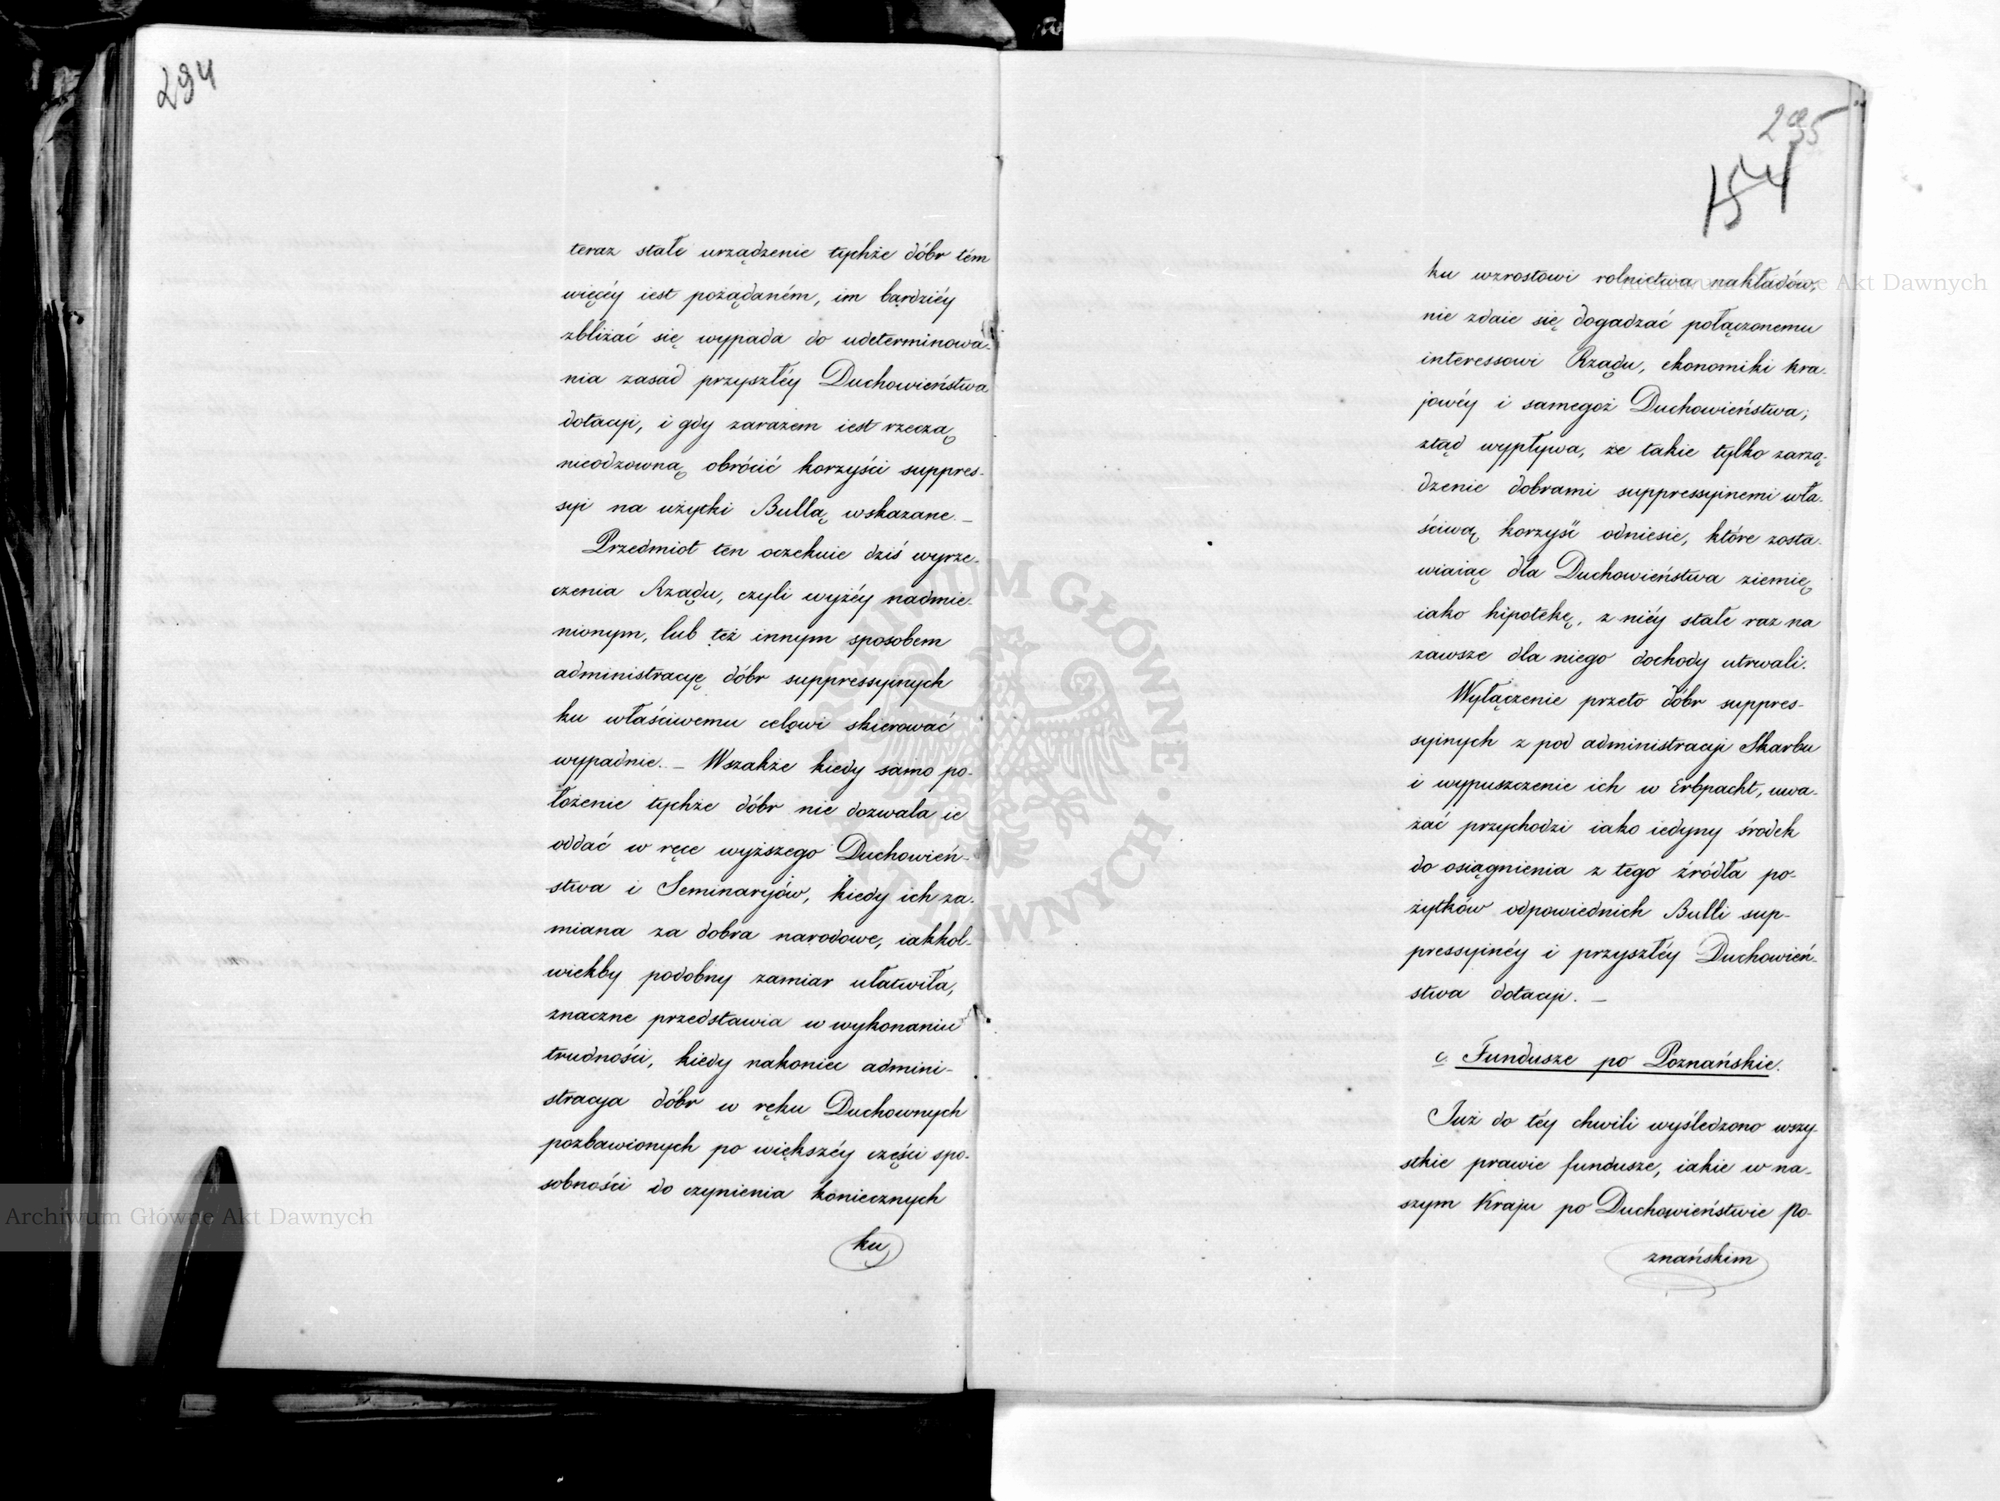 294
teraz stałe urządzenie tychże dóbr tém
więcéy iest pożądaném, im bardziéy
zbliżać się wypada do udeterminowa-
nia zasad przyszłéy Duchowieństwa
dotacyi, i gdy zarazem iest rzeczą
nieodzowną obrócić korzyści suppres-
syi na użytki Bullą wskazane. —
Przedmiot ten oczekuie dziś wyrze-
czenia Rządu, czyli wyżéy nadmie-
nionym, lub też innym sposobem
administracyę dóbr suppressyinych
ku właściwemu celowi skierować
wypadnie. — Wszakże kiedy samo po-
łożenie tychże dóbr nie dozwala ie
oddać w ręce wyższego Duchowień-
stwa i Seminaryów, kiedy ich za-
miana za dobra narodowe, iakkol-
wiekby podobny zamiar ułatwiła,
znaczne przedstawia w wykonaniu
trudności, kiedy nakoniec admini-
stracya dóbr w ręku Duchownych
pozbawionych po większéy części spo-
sobności do czynienia koniecznych
ku
295
154
ku wzrostowi rolnictwa nakładów,
nie zdaie się dogadzać połączonemu
interessowi Rządu, ekonomiki kra-
jowéy i samegoż Duchowieństwa;
ztąd wypływa, że takie tylko zarzą-
dzenie dobrami suppressyinemi wła-
ściwą korzyść odniesie, które zosta-
wiaiąc dla Duchowieństwa ziemię
iako hipotekę, z niéy stałe raz na
zawsze dla niego dochody utrwali.
Wyłączenie przeto dóbr suppres-
syinych z pod administracyi Skarbu
i wypuszczenie ich w Erbpacht, uwa-
żać przychodzi iako iedyny środek
do osiągnienia z tego źródła po-
żytków odpowiednich Bulli sup-
pressyinéy i przyszłéy Duchowień-
stwa dotacyi. —
c. Fundusze po Poznańskie.
Już do téy chwili wyśledzono wszy-
stkie prawie fundusze, iakie w na-
szym Kraju po Duchowieństwie Po-
znańskim
Archiwum Główne Akt Dawnych
Archiwum Główne Akt Dawnych
ARCHIWUM GŁÓWNE AKT DAWNYCH